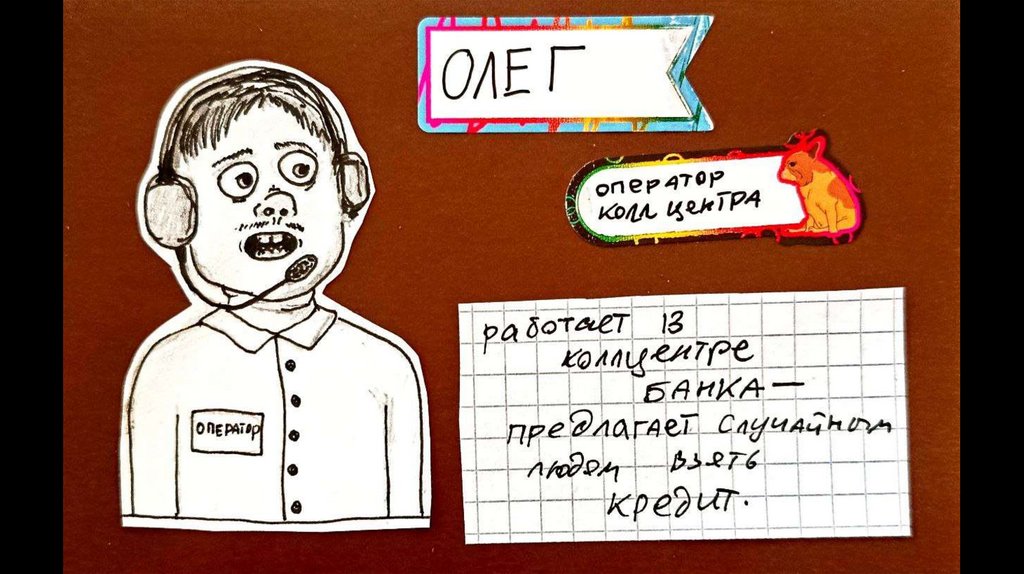 ОЛЕГ
ОПЕРАТОР
КОЛЛ ЦЕНТРА
ОПЕРАТОР
работает в
коллцентре
БАНКА —
предлагает случайным
людям взять
кредит.